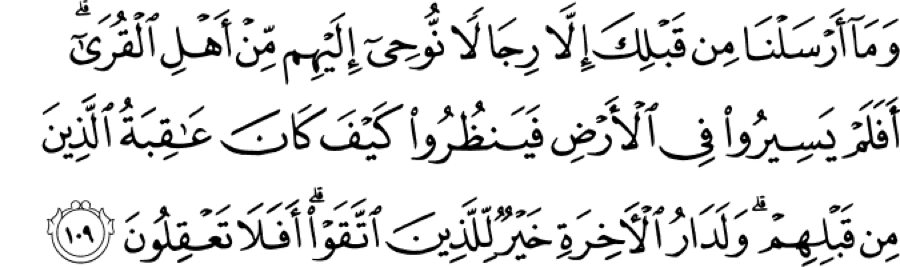 وَمَآ أَرْسَلْنَا مِن قَبْلِكَ إِلَّا رِجَالًا نُّوحِىٓ إِلَيْهِم مِّنْ أَهْلِ ٱلْقُرَىٰٓ ۗ
أَفَلَمْ يَسِيرُوا۟ فِى ٱلْأَرْضِ فَيَنظُرُوا۟ كَيْفَ كَانَ عَـٰقِبَةُ ٱلَّذِينَ
مِن قَبْلِهِمْ ۗ وَلَدَارُ ٱلْـَٔاخِرَةِ خَيْرٌ لِّلَّذِينَ ٱتَّقَوْا۟ ۗ أَفَلَا تَعْقِلُونَ ١٠٩